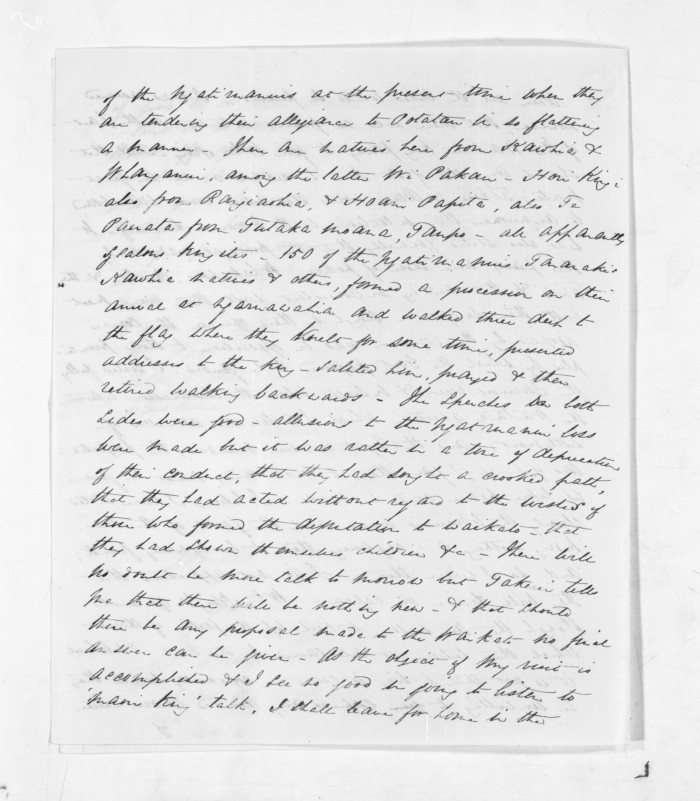 of the Ngatimaniu at the present time when they
are tendering their allegiance to Potatau in so flattering
a manner. There are natives here from Kawhia &
Whanganui, among the latter Wi Pakau - Hori Kingi
also from Rangiaohia, & Hoani Papita, also Te
Paurata from Tutaka moana, Taupo - all apparently
zealous Kingites - 150 of the Ngatimaniu Taranakis
Kawhia natives & others, formed a procession on their
arrival at Ngaruawahia and walked three deep to
the flag where they knelt for some time, presented
addresses to the King - saluted him, prayed & then
retired walking backwards - The Speeches on both
sides were good - allusions to the Ngatimaniu loss
were made but it was rather in a tone of depreciation
of their conduct, that they had sought a crooked path,
that they had acted without regard to the wishes of
those who formed the deputation to Waikato - that
they had shown themselves children &c - There will
no doubt be more talk to morrow but Takirei tells
me that there will be nothing new - & that should
there be any proposal made to the Waikato no final
answer can be given - As the object of my visit is
accomplished & I see no good in going to listen to
'maori King' talk, I shall leave for home in the